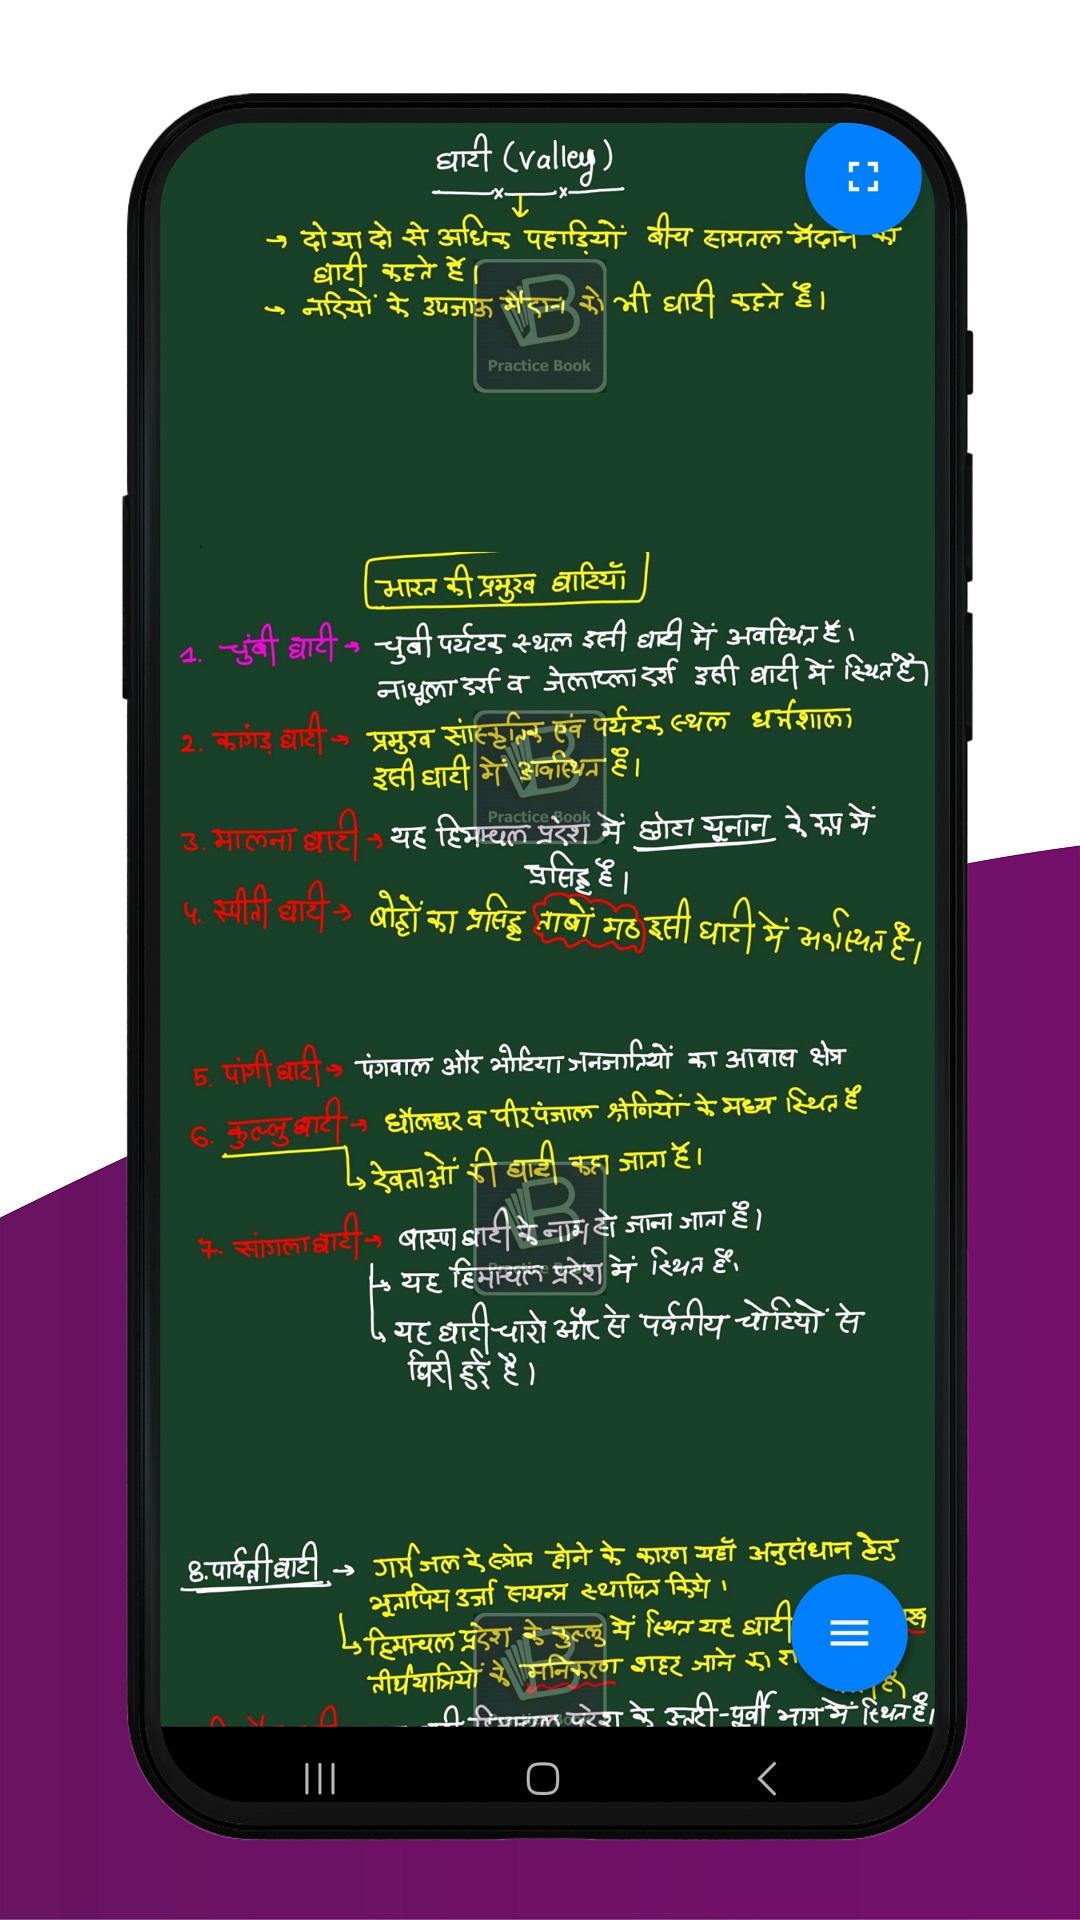 घाटी (Valley)
→ दो या दो से अधिक पहाड़ियों बीच समतल मैदान को
घाटी कहते हैं।
→ नदियों के उपजाऊ मैदान को भी घाटी कहते हैं।
Practice Book
भारत की प्रमुख घाटियाँ
1. चुंबी घाटी → चुंबी पर्यटक स्थल इसी घाटी में अवस्थित है।
नाथूला दर्रा व जेलाप्ला दर्रा इसी घाटी में स्थित है।
2. कांगड़ घाटी → प्रमुख सांस्कृतिक एवं पर्यटक स्थल धर्मशाला
इसी घाटी में अवस्थित है।
Practice Book
3. मालना घाटी → यह हिमाचल प्रदेश में छोटा यूनान के रूप में
प्रसिद्ध है।
4. स्पीती घाटी → बौद्धों का प्रसिद्ध ताबों मठ इसी घाटी में अवस्थित है।
5. पांगी घाटी → पंगवाल और भोटिया जनजातियों का आवास क्षेत्र
6. कुल्लु घाटी → धौलधर व पीरपंजाल श्रेणियों के मध्य स्थित है
↳ देवताओं की घाटी कहा जाता है।
7. सांगला घाटी → बास्पा घाटी के नाम से जाना जाता है।
→ यह हिमाचल प्रदेश में स्थित है।
↳ यह घाटी चारो और से पर्वतीय चोटियों से
घिरी हुई है।
8. पार्वती घाटी → गर्म जल के स्त्रोत होने के कारण यहाँ अनुसंधान हेतु
भूतापिय उर्जा सयन्त्र स्थापित किये।
↳ हिमाचल प्रदेश के कुल्लु में स्थित यह घाटी
तीर्थयात्रियों के मनिकरण शहर जाने का
हिमाचल प्रदेश के उत्तरी-पूर्वी भाग में स्थित है।